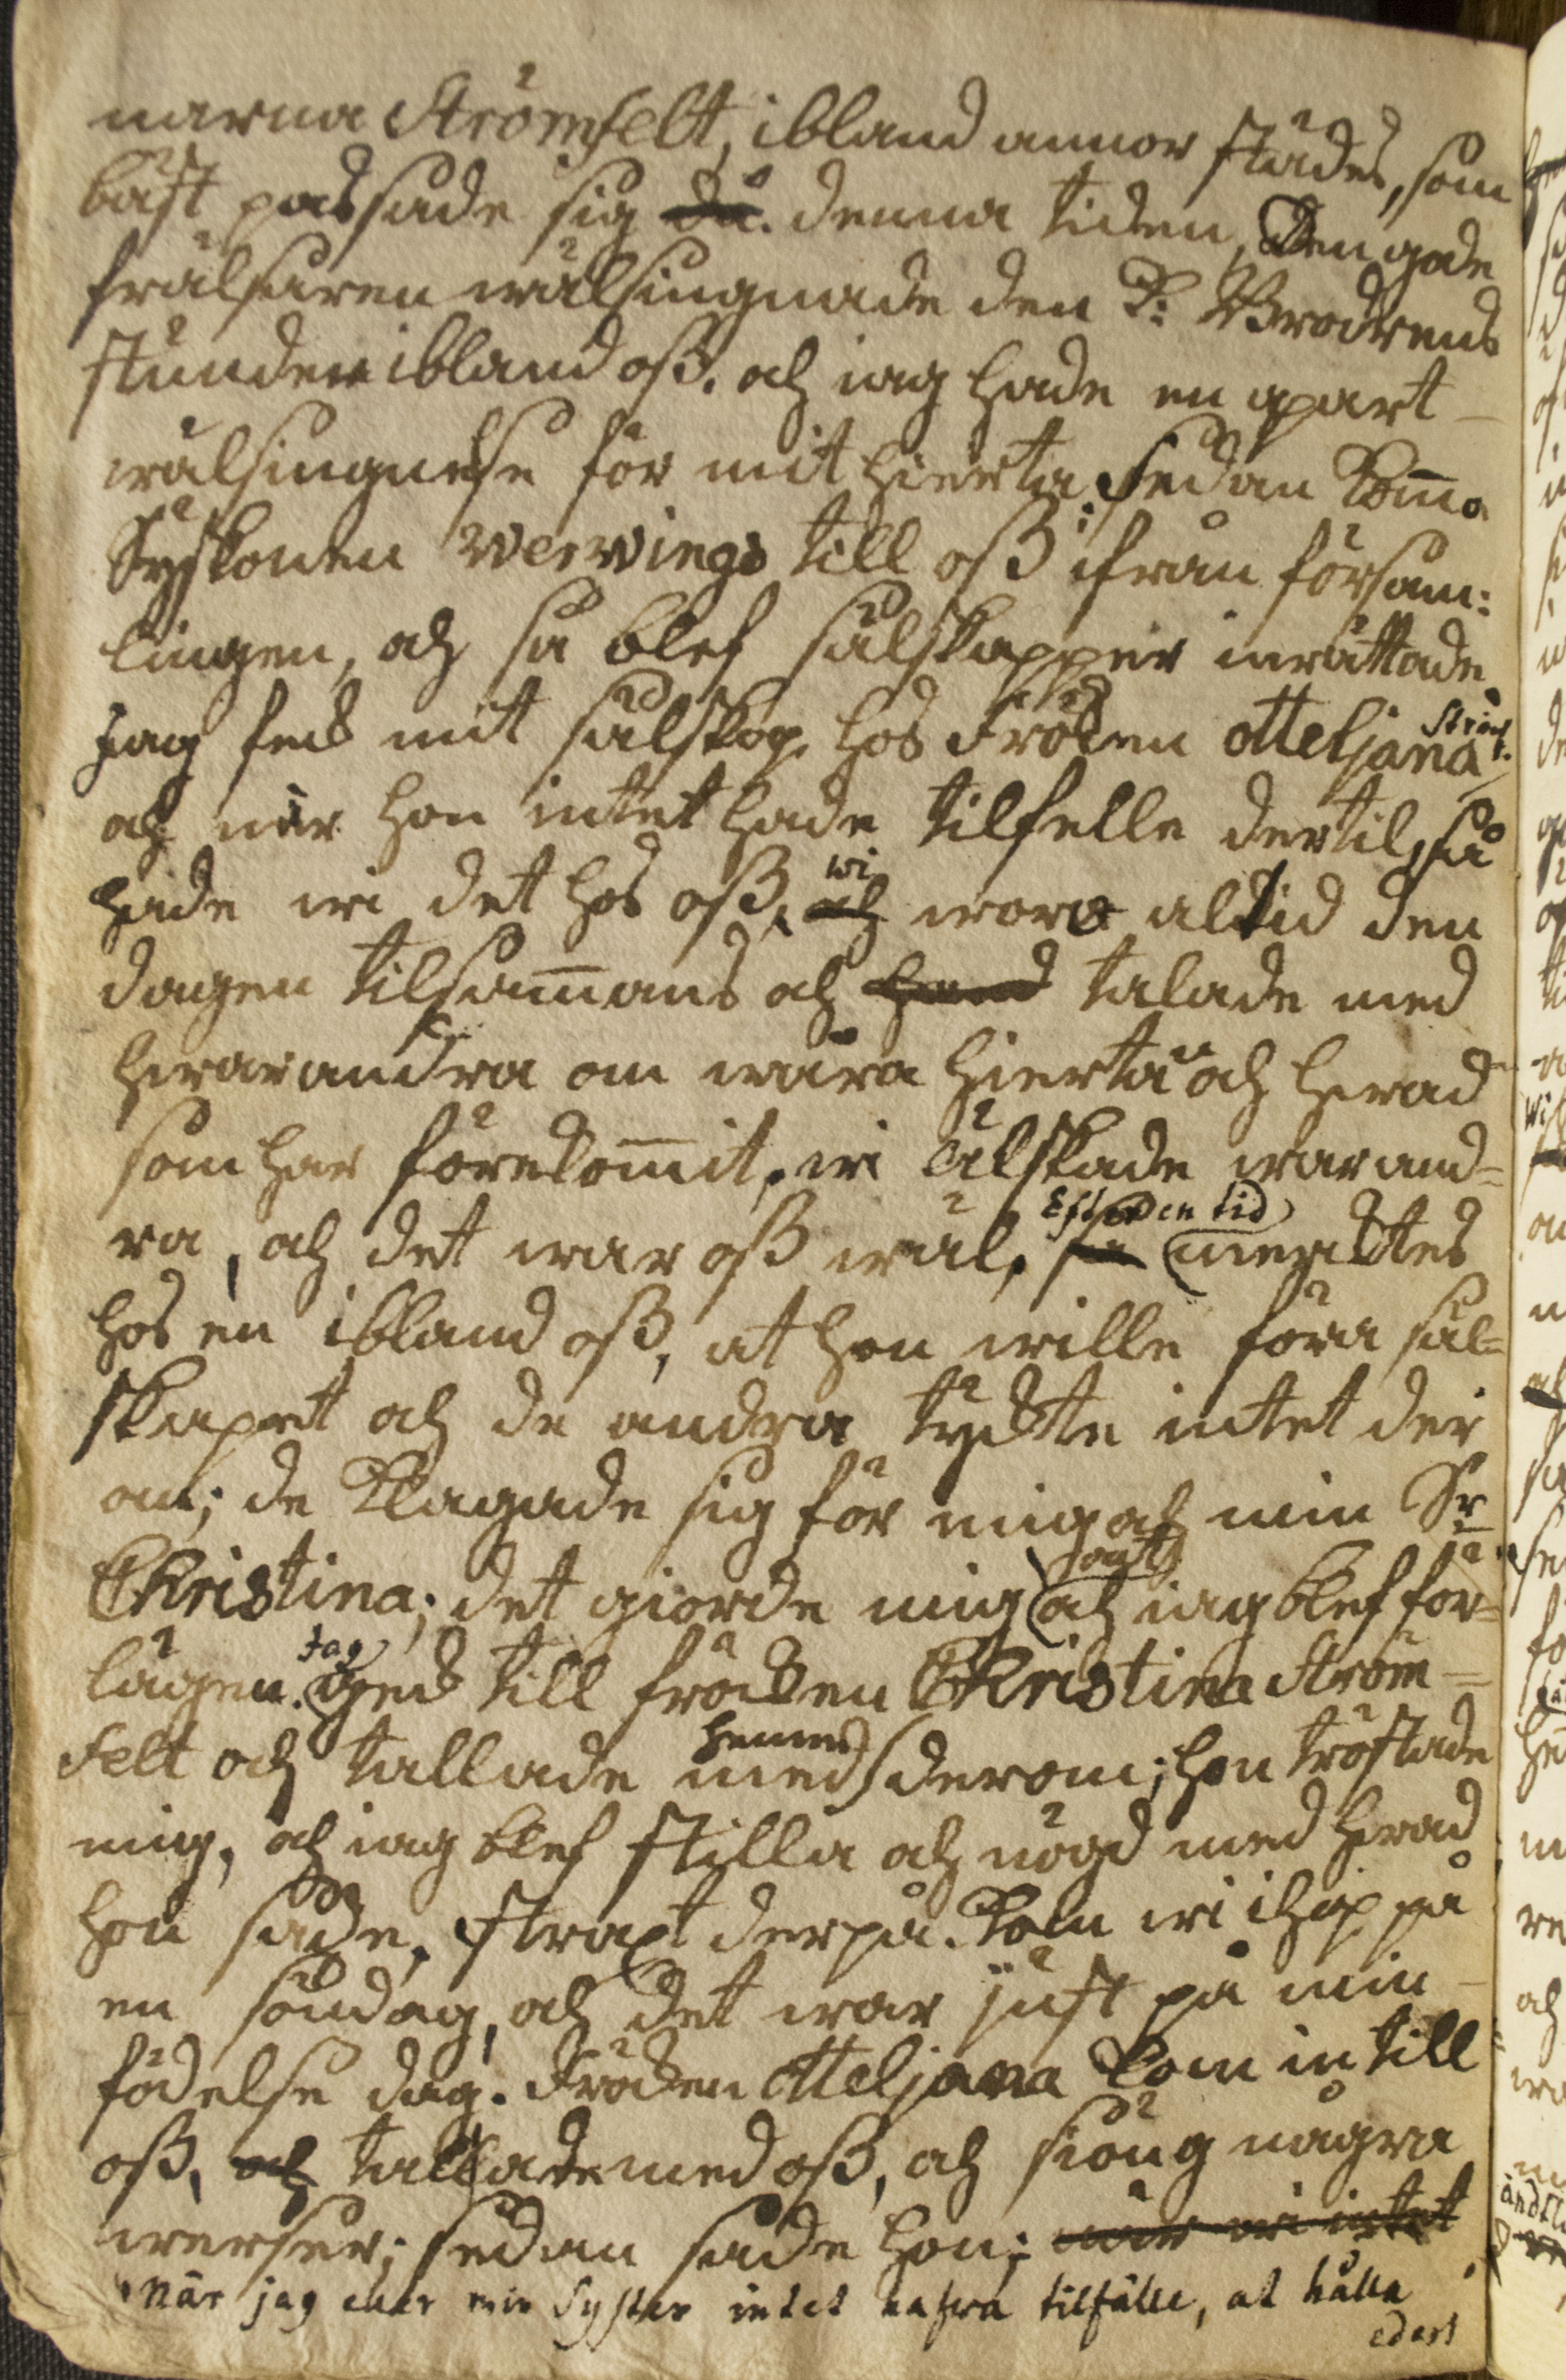 narna Strömfelt, ibland annor städes, som
bäst passade sig då. denna tiden, Den gode
frälsaren wälsingnade den K: Brödrens
stunder ibland oss. och iag hade en apart
wälsingnelse för mit hierta. sedan komo
Syskonen Werwings till oss ifrån försam:
lingen, och så blef sälskapper inrättade.
Jag feck mit sälskap hos Fröcken otteljana Strömf.
och när hon intet hade tilfelle dertil, så
hade wi det hos oss, och wi woro altid den
dagen tilsammans och talade med
hwarandra om wåra hierta och hwad
som har förekommit, wi älskade warand=
ra, och det war oss wäl, så Efter den tid mercktes
hos en ibland oss, at hon wille föra säl=
skapet och de andra tyckte intet der
om; de klagade sig för mig och min Sr
Christina; det giorde mig ont och iag blef för=
lägen. Jag geck till fröcken Christina Ström=
felt och tallade med henne derom; hon tröstade
mig, och iag blef stilla och nögd med hwad
hon sade. straxt derpå kom wi ihop på
en söndag, och det war just på min
födelse dag. Fröcken otteljana kom in till
oss, och tallade med oss, och siöng några
werser; sedan sade hon; när wi intet
När jag eller min Syster intet hafwa tilfälle, at hålla
edart